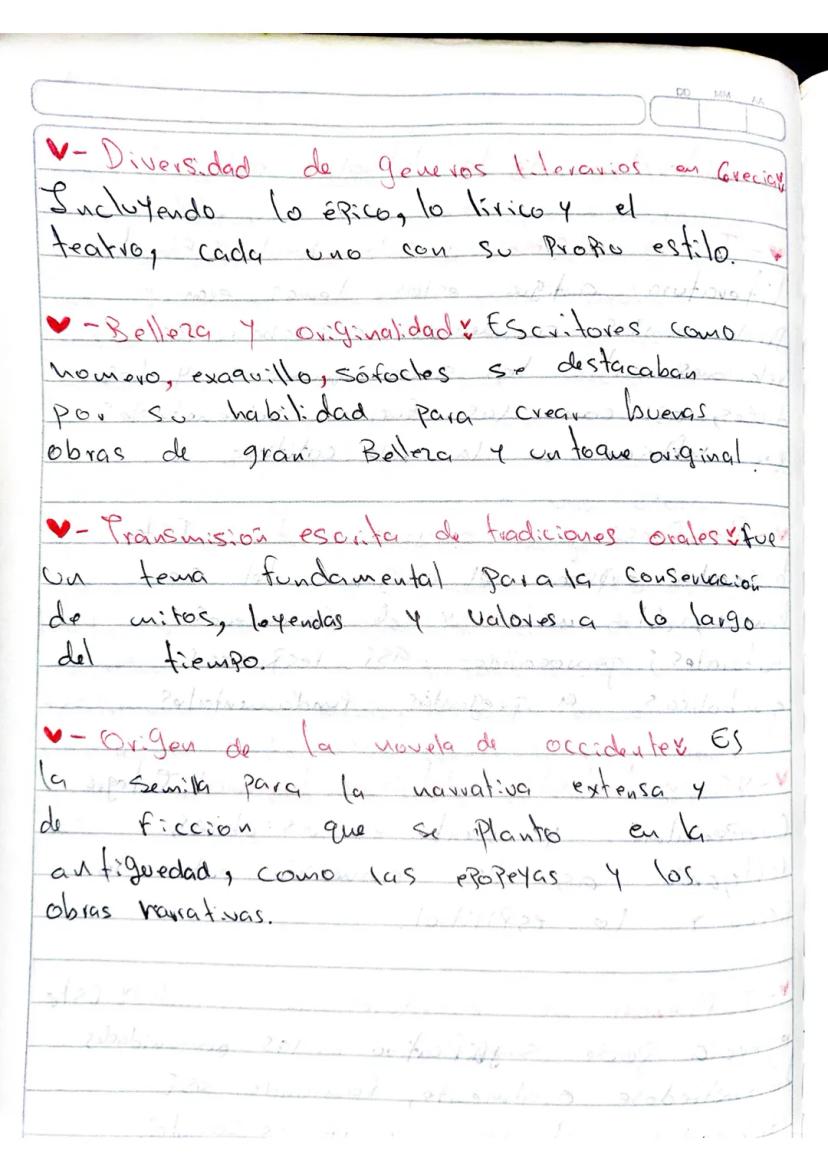 DD MM AA
♥- Diversidad de generos literarios en Grecia:
Incluyendo lo épico, lo lírico y el
teatro, cada uno con su Propio estilo.
♥-Belleza y originalidad: Escritores como
homero, exaquillo, sófocles se destacaban
por su habilidad para crear buenas
obras de gran Belleza y un toque original.
♥- Transmisión escrita de tradiciones orales: fue
un tema fundamental para la conservación
de mitos, leyendas y valores a lo largo
del tiempo.
♥- Origen de la novela de occidente: ES
la semilla para la narrativa extensa y
de ficcion que se Planto en la
antiguedad, como las epopeyas y los
obras narrativas.